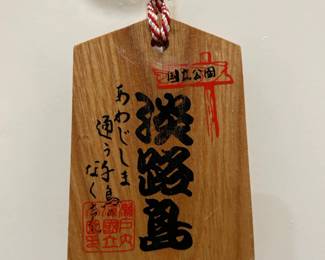 国立公園
淡路島
あわじしま
通う千鳥の
なく声に
瀬戸内
海國立
公園